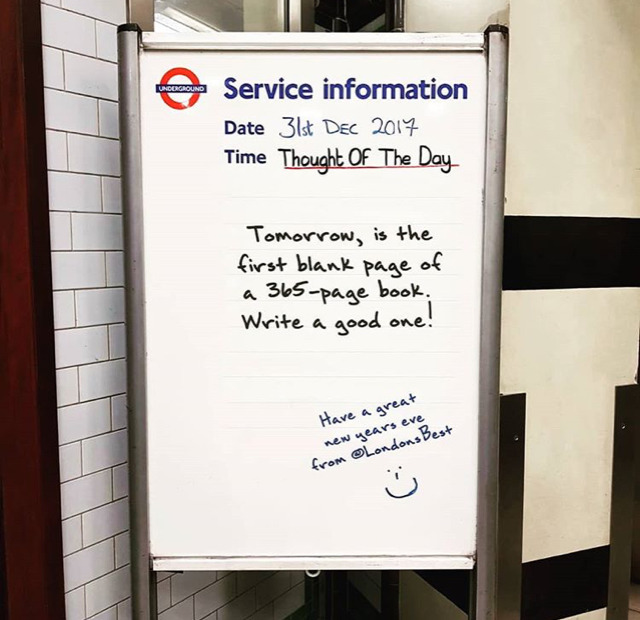 UNDERGROUND
Service information
Date 31st DEC 2017
Time Thought Of The Day
Tomorrow, is the
first blank page of
a 365-page book.
Write a good one!
Have a great
new years eve
from @LondonsBest